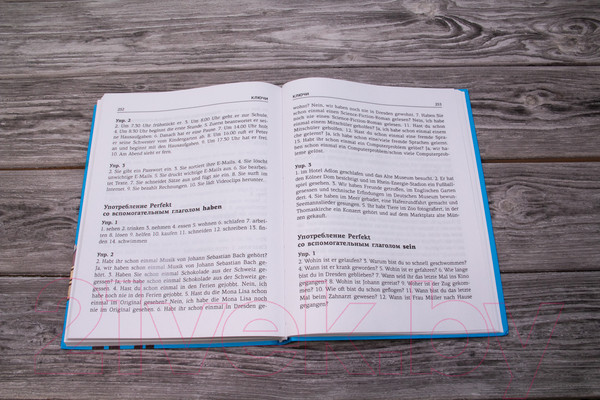 202
КЛЮЧИ
Упр. 2
2. Um 7:30 Uhr frühstückt er. 3. Um 8:00 Uhr geht er zur Schule.
4. Um 8:30 Uhr beginnt die erste Stunde. 5. Dann beantwortet er
Hausaufgaben. 6. Danach hat er eine Pause. 7. Um 14:00 Uhr
er seine Schwester vom Kindergarten ab. 8. Um 16:00 ruft er Peter
an und beginnt mit den Hausaufgaben. 9. Um 17:30 Uhr hat er frei.
10. Am Abend sieht er fern.
Упр. 3
2. Sie gibt ein Passwort ein. 3. Sie sortiert ihre E-Mails. 4. Sie löscht
unwichtige E-Mails. 5. Sie druckt wichtige E-Mails aus. 6. Sie bearbei-
tet Texte. 7. Sie schneidet Sätze aus und fügt sie ein. 8. Sie surft im
Internet. 9. Sie bezahlt Rechnungen. 10. Sie lädt Videoclips herunter.
Употребление Perfekt
со вспомогательным глаголом haben
Упр. 1
1. sehen 2. trinken 3. nehmen 4. essen 5. wohnen 6. schlafen 7. arbei-
ten 8. lesen 9. helfen 10. kaufen 11. schneiden 12. schreiben 13. fin-
den 14. schwimmen
Упр. 2
2. Habt ihr schon einmal Musik von Johann Sebastian Bach gehört?
Ja, wir haben schon einmal Musik von Johann Sebastian Bach ge-
hört. 3. Haben Sie schon einmal Schokolade aus der Schweiz ge-
gessen? Ja, ich habe schon einmal Schokolade aus der Schweiz ge-
gessen. 4. Hast du schon einmal in den Ferien gejobbt? Nein, ich
habe noch nie in den Ferien gejobbt. 5. Hast du die Mona Lisa schon
einmal im Original gesehen? Nein, ich habe die Mona Lisa noch
nie im Original gesehen. 6. Habt ihr schon einmal in Dresden ge-
КЛЮЧИ
203
wohnt? Nein, wir haben noch nie in Dresden gewohnt. 7. Haben Sie
schon einmal einen Science-Fiction-Roman gelesen? Nein, ich habe
noch nie einen Science-Fiction-Roman gelesen. 8. Hast du schon
einmal einem Mitschüler geholfen? Ja, ich habe schon einmal einem
Mitschüler geholfen. 9. Hast du schon
einmal eine fremde Spra-
che gelernt? Ja, ich habe schon einmal
Упр. 3
1. im Hotel Adlon geschlafen und das Alte Museum besucht. 2. Er hat
den Kölner Dom besichtigt und im Rhein-Energie-Stadion ein Fußball-
spiel gesehen. 3. Wir haben Freunde getroffen, im Englischen Garten
gesessen und technische Erfindungen im Deutschen Museum bewun-
dert. 4. Sie haben im Meer gebadet, eine Hafenrundfahrt gemacht und
Seemannslieder gesungen. 5. Ihr habt Tiere im Zoo fotografiert, in der
Thomaskirche ein Konzert gehört und auf dem Marktplatz alte Mün-
zen gekauft.
Употребление Perfekt
со вспомогательным глаголом sein
Упр. 1
2. Wohin ist er gelaufen? 3. Warum bist du so schnell geschwommen?
4. Wann ist er krank geworden? 5. Wohin ist er gefahren? 6. Wie lange
bist du in Dresden geblieben? 7. Wann seid ihr das letzte Mal ins Kino
gegangen? 8. Wohin ist Johann gereist? 9. Woher ist der Zug gekom-
men? 10. Wie oft bist du schon geflogen? 11. Wann bist du das letzte
Mal beim Zahnarzt gewesen? 12. Wann ist Frau Müller nach Hause
gegangen?